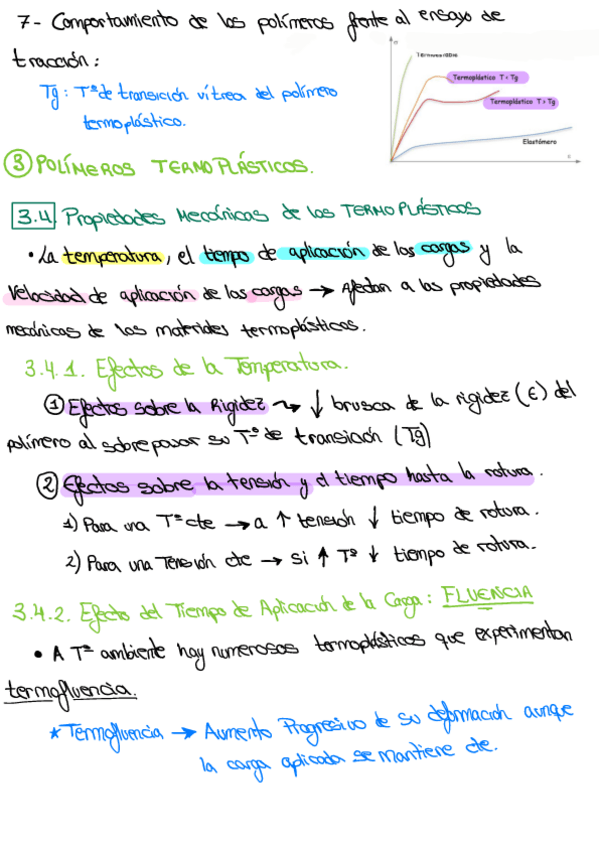 7- Comportamiento de los polímeros frente al ensayo de
tracción:
Tg: Tª de transición vítrea del polímero
termoplástico.
σ
Termoestable
Termoplástico T < Tg
Termoplástico T > Tg
Elastómero
ε
③ POLÍMEROS TERMOPLÁSTICOS.
3.4 Propiedades Mecánicas de los TERMOPLÁSTICOS
• La temperatura, el tiempo de aplicación de las cargas y la
velocidad de aplicación de las cargas → Afectan a las propiedades
mecánicas de los materiales termoplásticos.
3.4.1. Efectos de la Temperatura.
① Efectos sobre la Rigidez ⤳ ↓ brusca de la rigidez (E) del
polímero al sobrepasar su Tª de transición (Tg)
② Efectos sobre la tensión y el tiempo hasta la rotura.
1) Para una Tª cte → a ↑ tensión ↓ tiempo de rotura.
2) Para una Tensión cte → si ↑ Tª ↓ tiempo de rotura.
3.4.2. Efecto del Tiempo de Aplicación de la Carga: FLUENCIA
• A Tª ambiente hay numerosos termoplásticos que experimentan
termofluencia.
★ Termofluencia → Aumento Progresivo de su deformación aunque
la carga aplicada se mantiene cte.